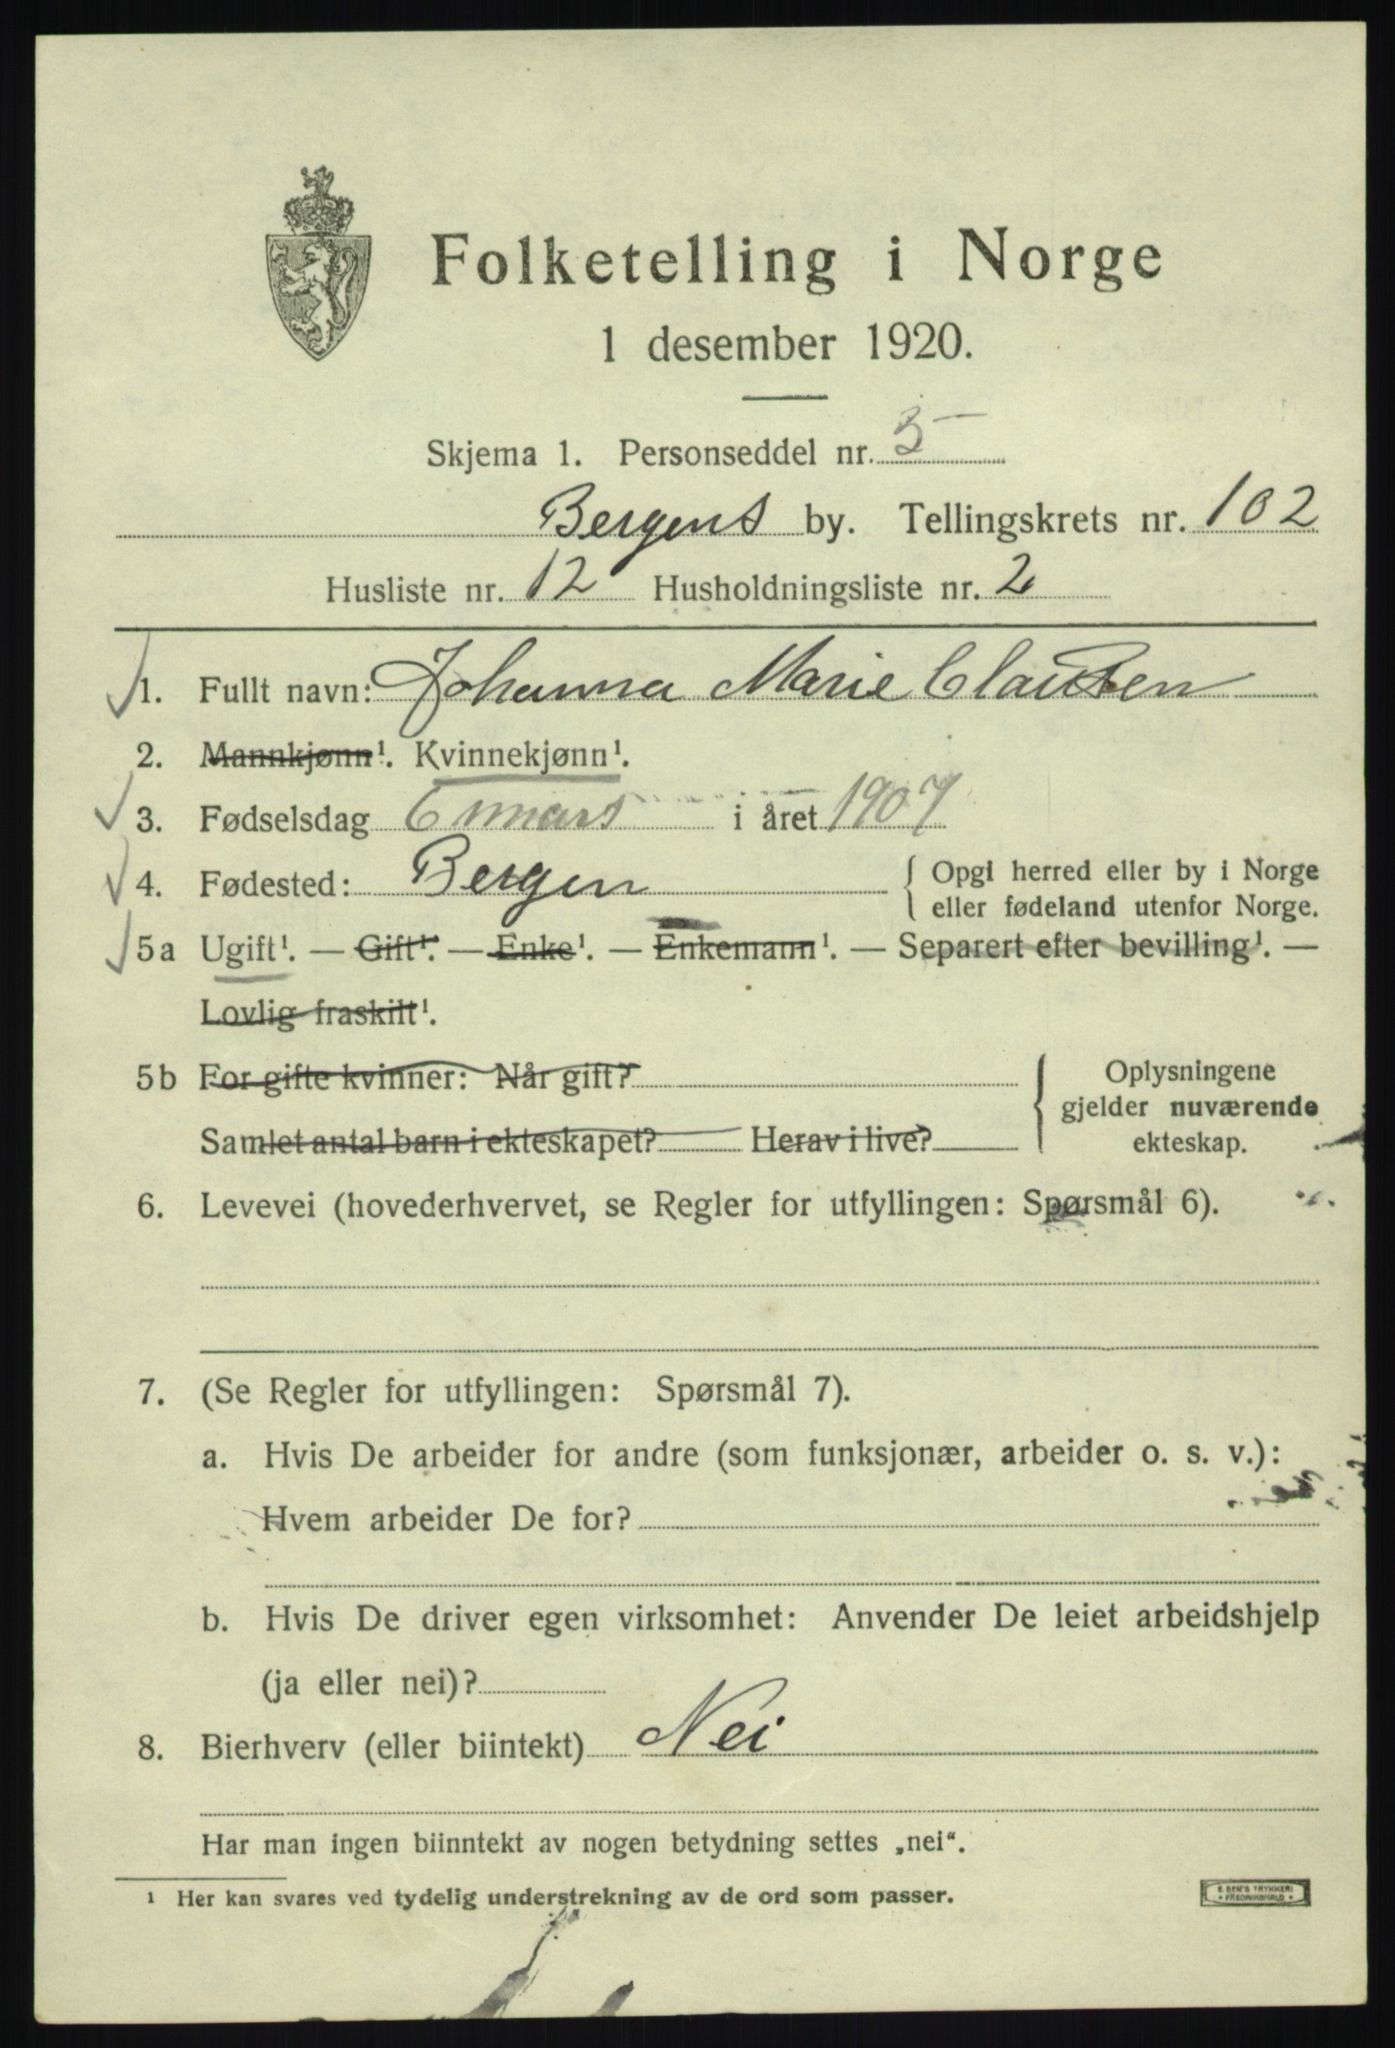 Folketelling i Norge
1 desember 1920.
Skjema 1. Personseddel nr. 5
Bergens by. Tellingskrets nr. 102
Husliste nr. 12 Husholdningsliste nr. 2
1. Fullt navn: Johanna Marie Clausen
2. Mannkjønn¹. Kvinnekjønn¹.
3. Fødselsdag 6 mars i året 1907
4. Fødested: Bergen { Opgi herred eller by i Norge
eller fødeland utenfor Norge.
5a Ugift¹. — Gift¹. — Enke¹. — Enkemann¹. — Separert efter bevilling¹. —
Lovlig fraskilt¹.
5b For gifte kvinner: Når gift? { Oplysningene
gjelder nuværende
Samlet antal barn i ekteskapet? Herav i live? ekteskap.
6. Levevei (hovederhvervet, se Regler for utfyllingen: Spørsmål 6).
7. (Se Regler for utfyllingen: Spørsmål 7).
a. Hvis De arbeider for andre (som funksjonær, arbeider o. s. v.):
Hvem arbeider De for?
b. Hvis De driver egen virksomhet: Anvender De leiet arbeidshjelp
(ja eller nei)?
8. Bierhverv (eller biintekt) Nei
Har man ingen biinntekt av nogen betydning settes „nei“.
¹ Her kan svares ved tydelig understrekning av de ord som passer.